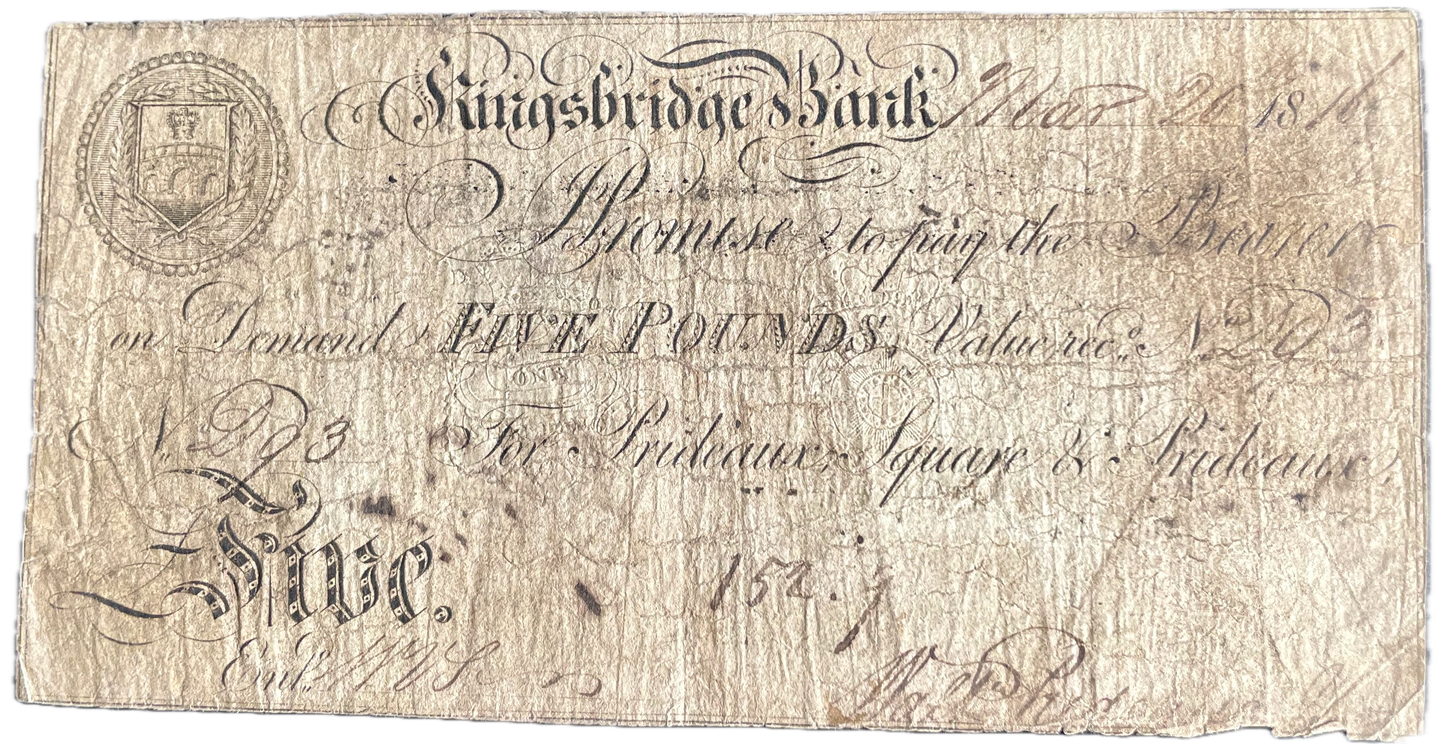 Kingsbridge Bank Mar 26 1816
I Promise to pay the Bearer
on Demand FIVE POUNDS, Value rec.d N. 293
ONE
N. 293 For Prideaux, Square & Prideaux,
Five.
152.
Ent.d
Wm